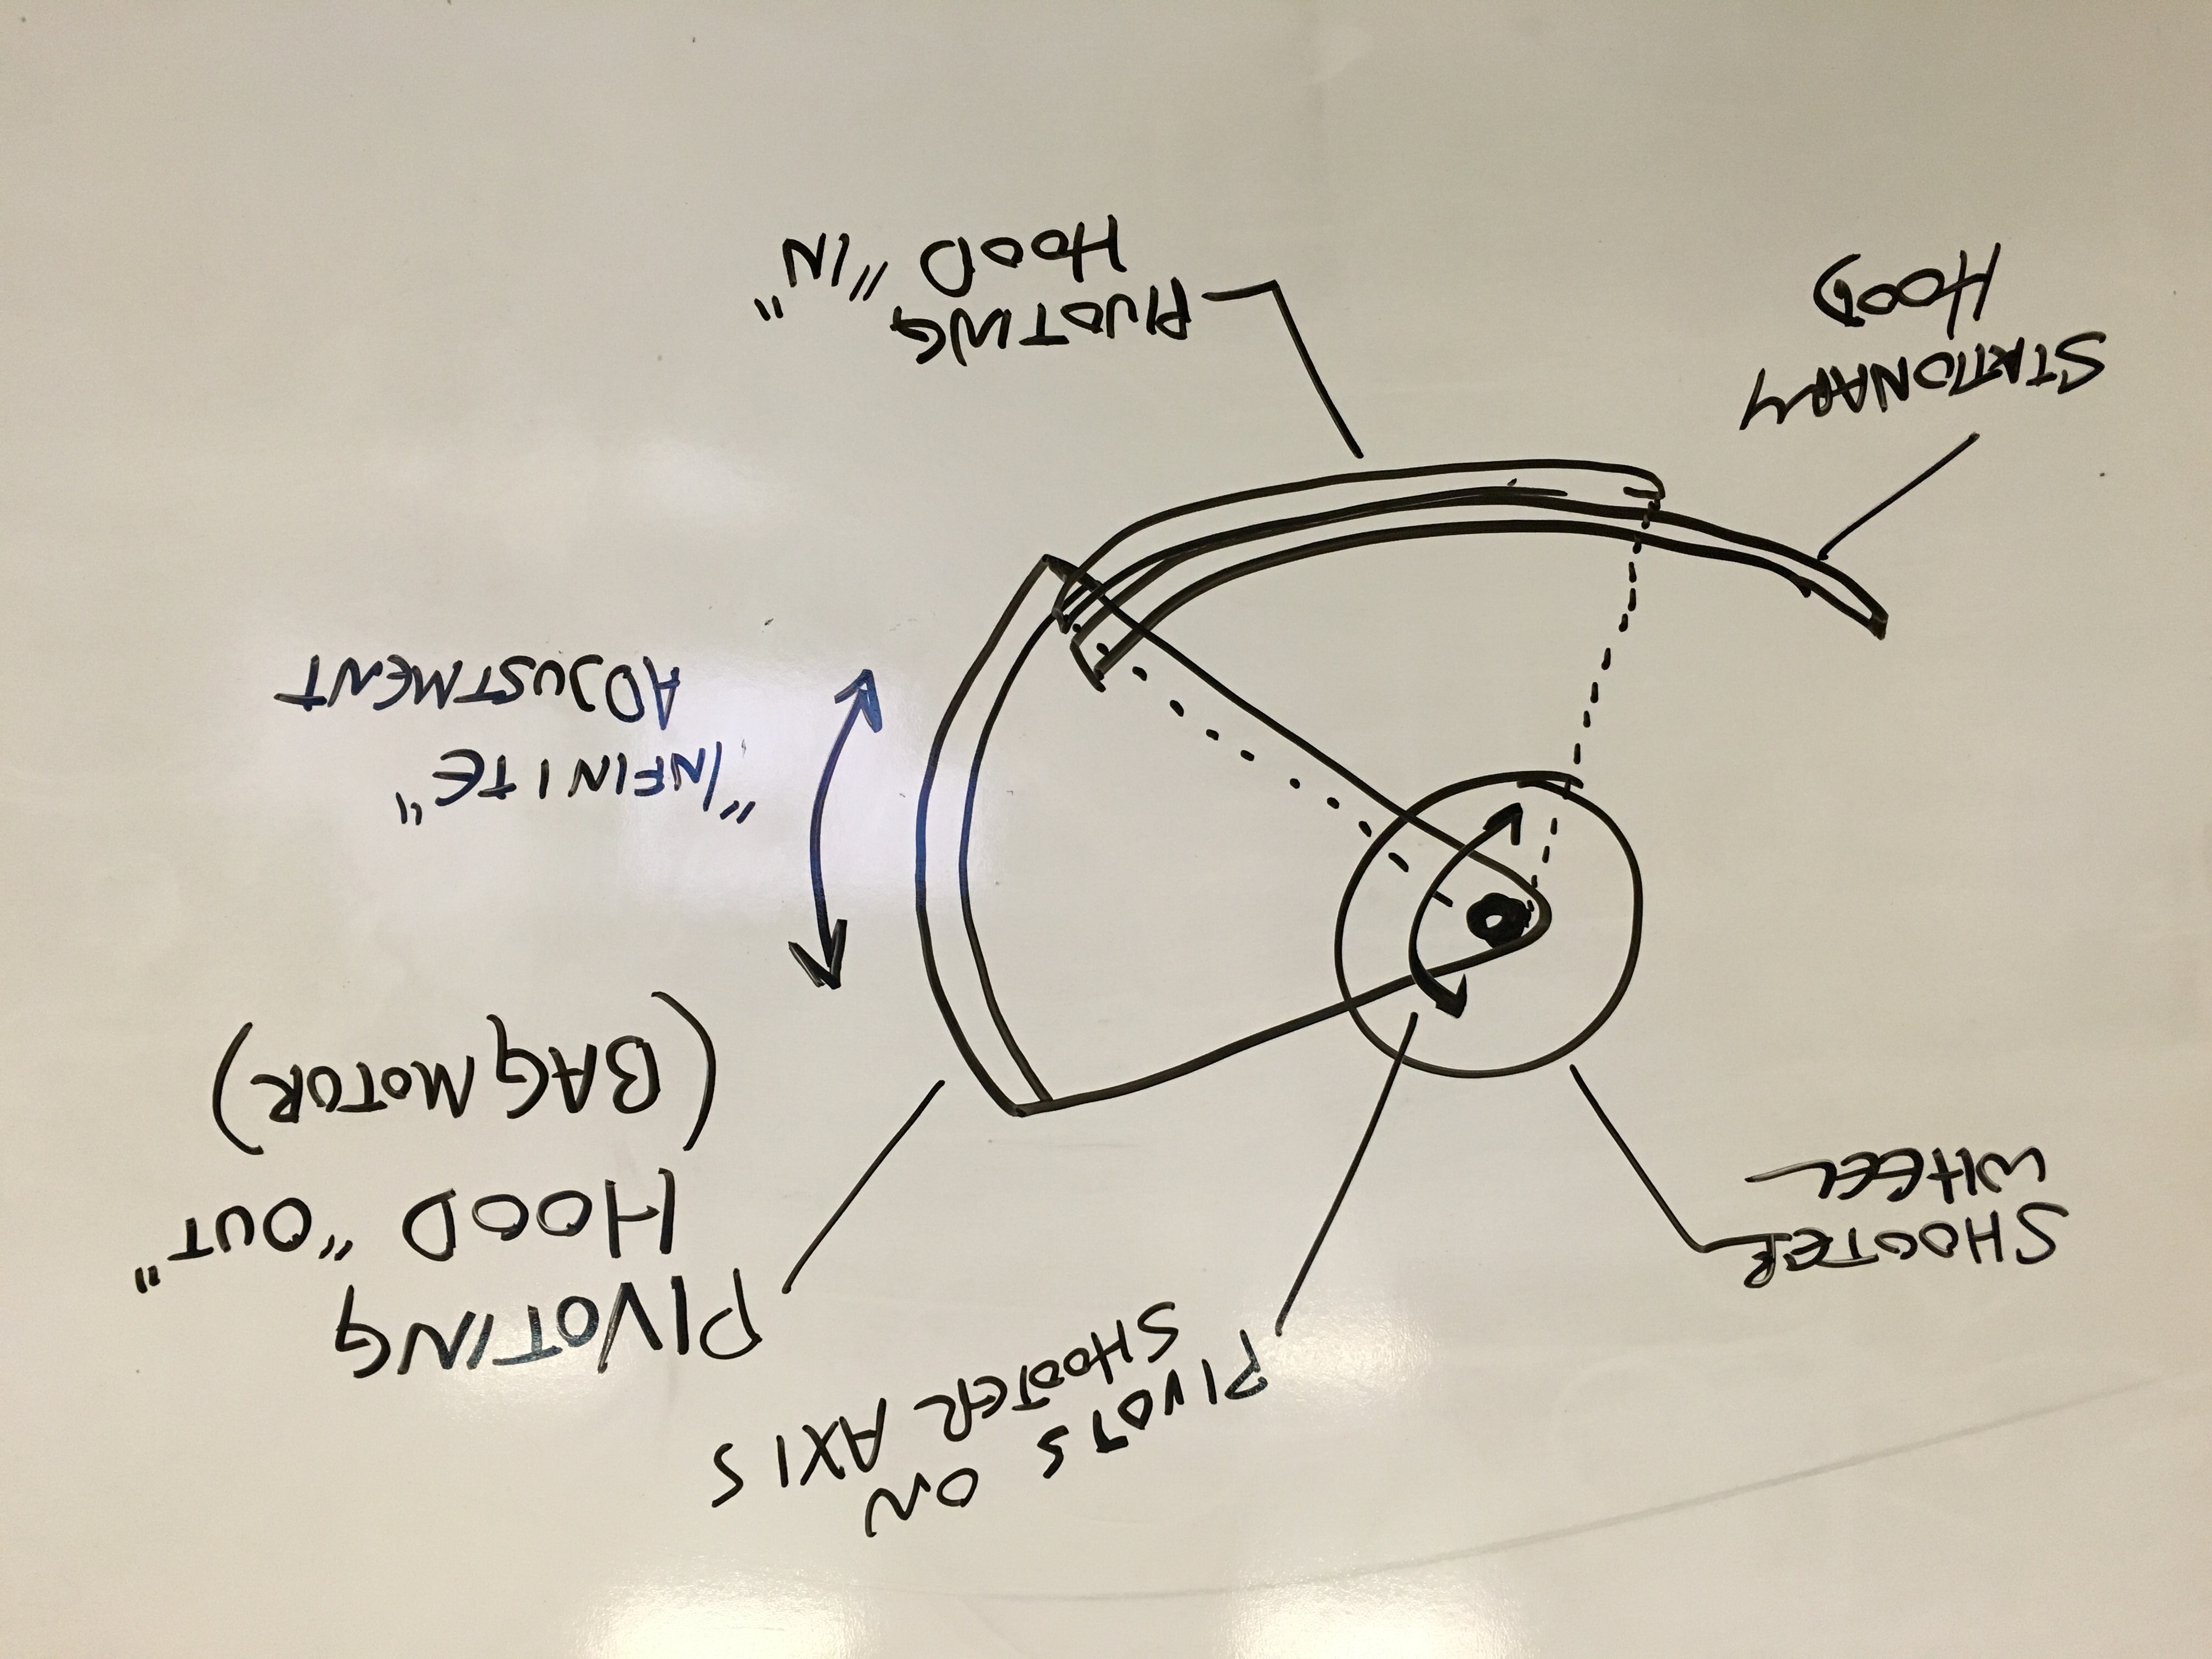 PIVOTS ON
SHOOTER AXIS
SHOOTER
WHEEL
PIVOTING
HOOD "OUT"
(BAG MOTOR)
"INFINITE"
ADJUSTMENT
STATIONARY
HOOD
PIVOTING
HOOD "IN"